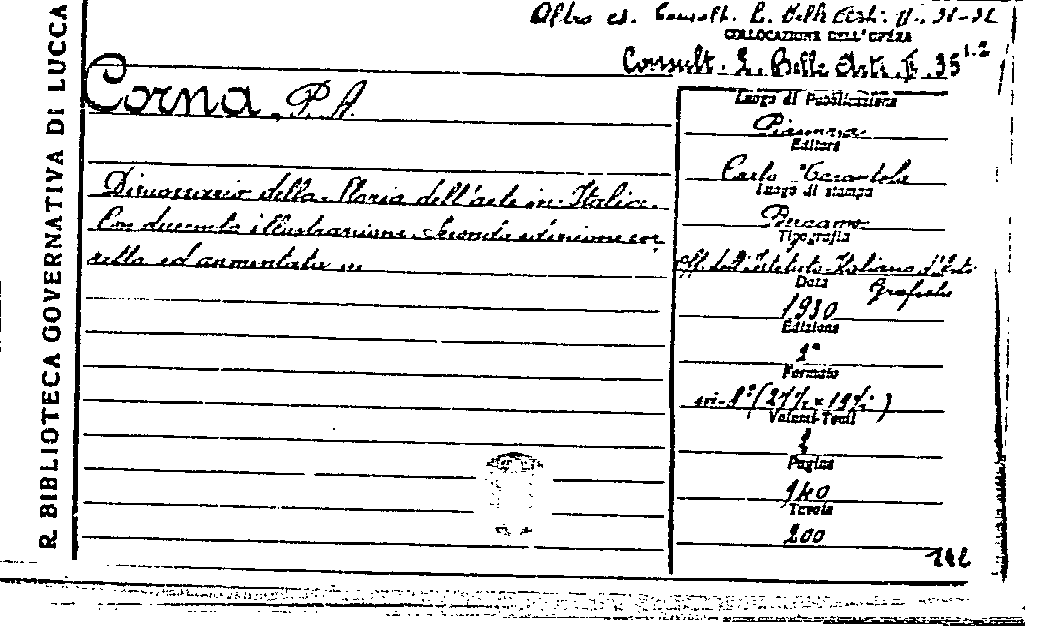 R. BIBLIOTECA GOVERNATIVA DI LUCCA
Altro es. Consult. E. Belle Arti. II. 31-32
COLLOCAZIONE DELL'OPERA
Consult. E. Belle Arti. II. 35 1.2
Corna, P. A.
Dizionario della Storia dell'arte in Italia.
Con duecento illustrazioni. Seconda edizione cor
retta ed aumentata
Luogo di Pubblicazione
Piacenza
Editore
Carlo Tarantola
Luogo di stampa
Bergamo
Tipografia
Off. dell'Istituto Italiano d'Arti
Grafiche
Data
1930
Edizione
2ª
Formato
in-8° (27½ x 19½)
Volumi-Tomi
2
Pagine
Tavole
200